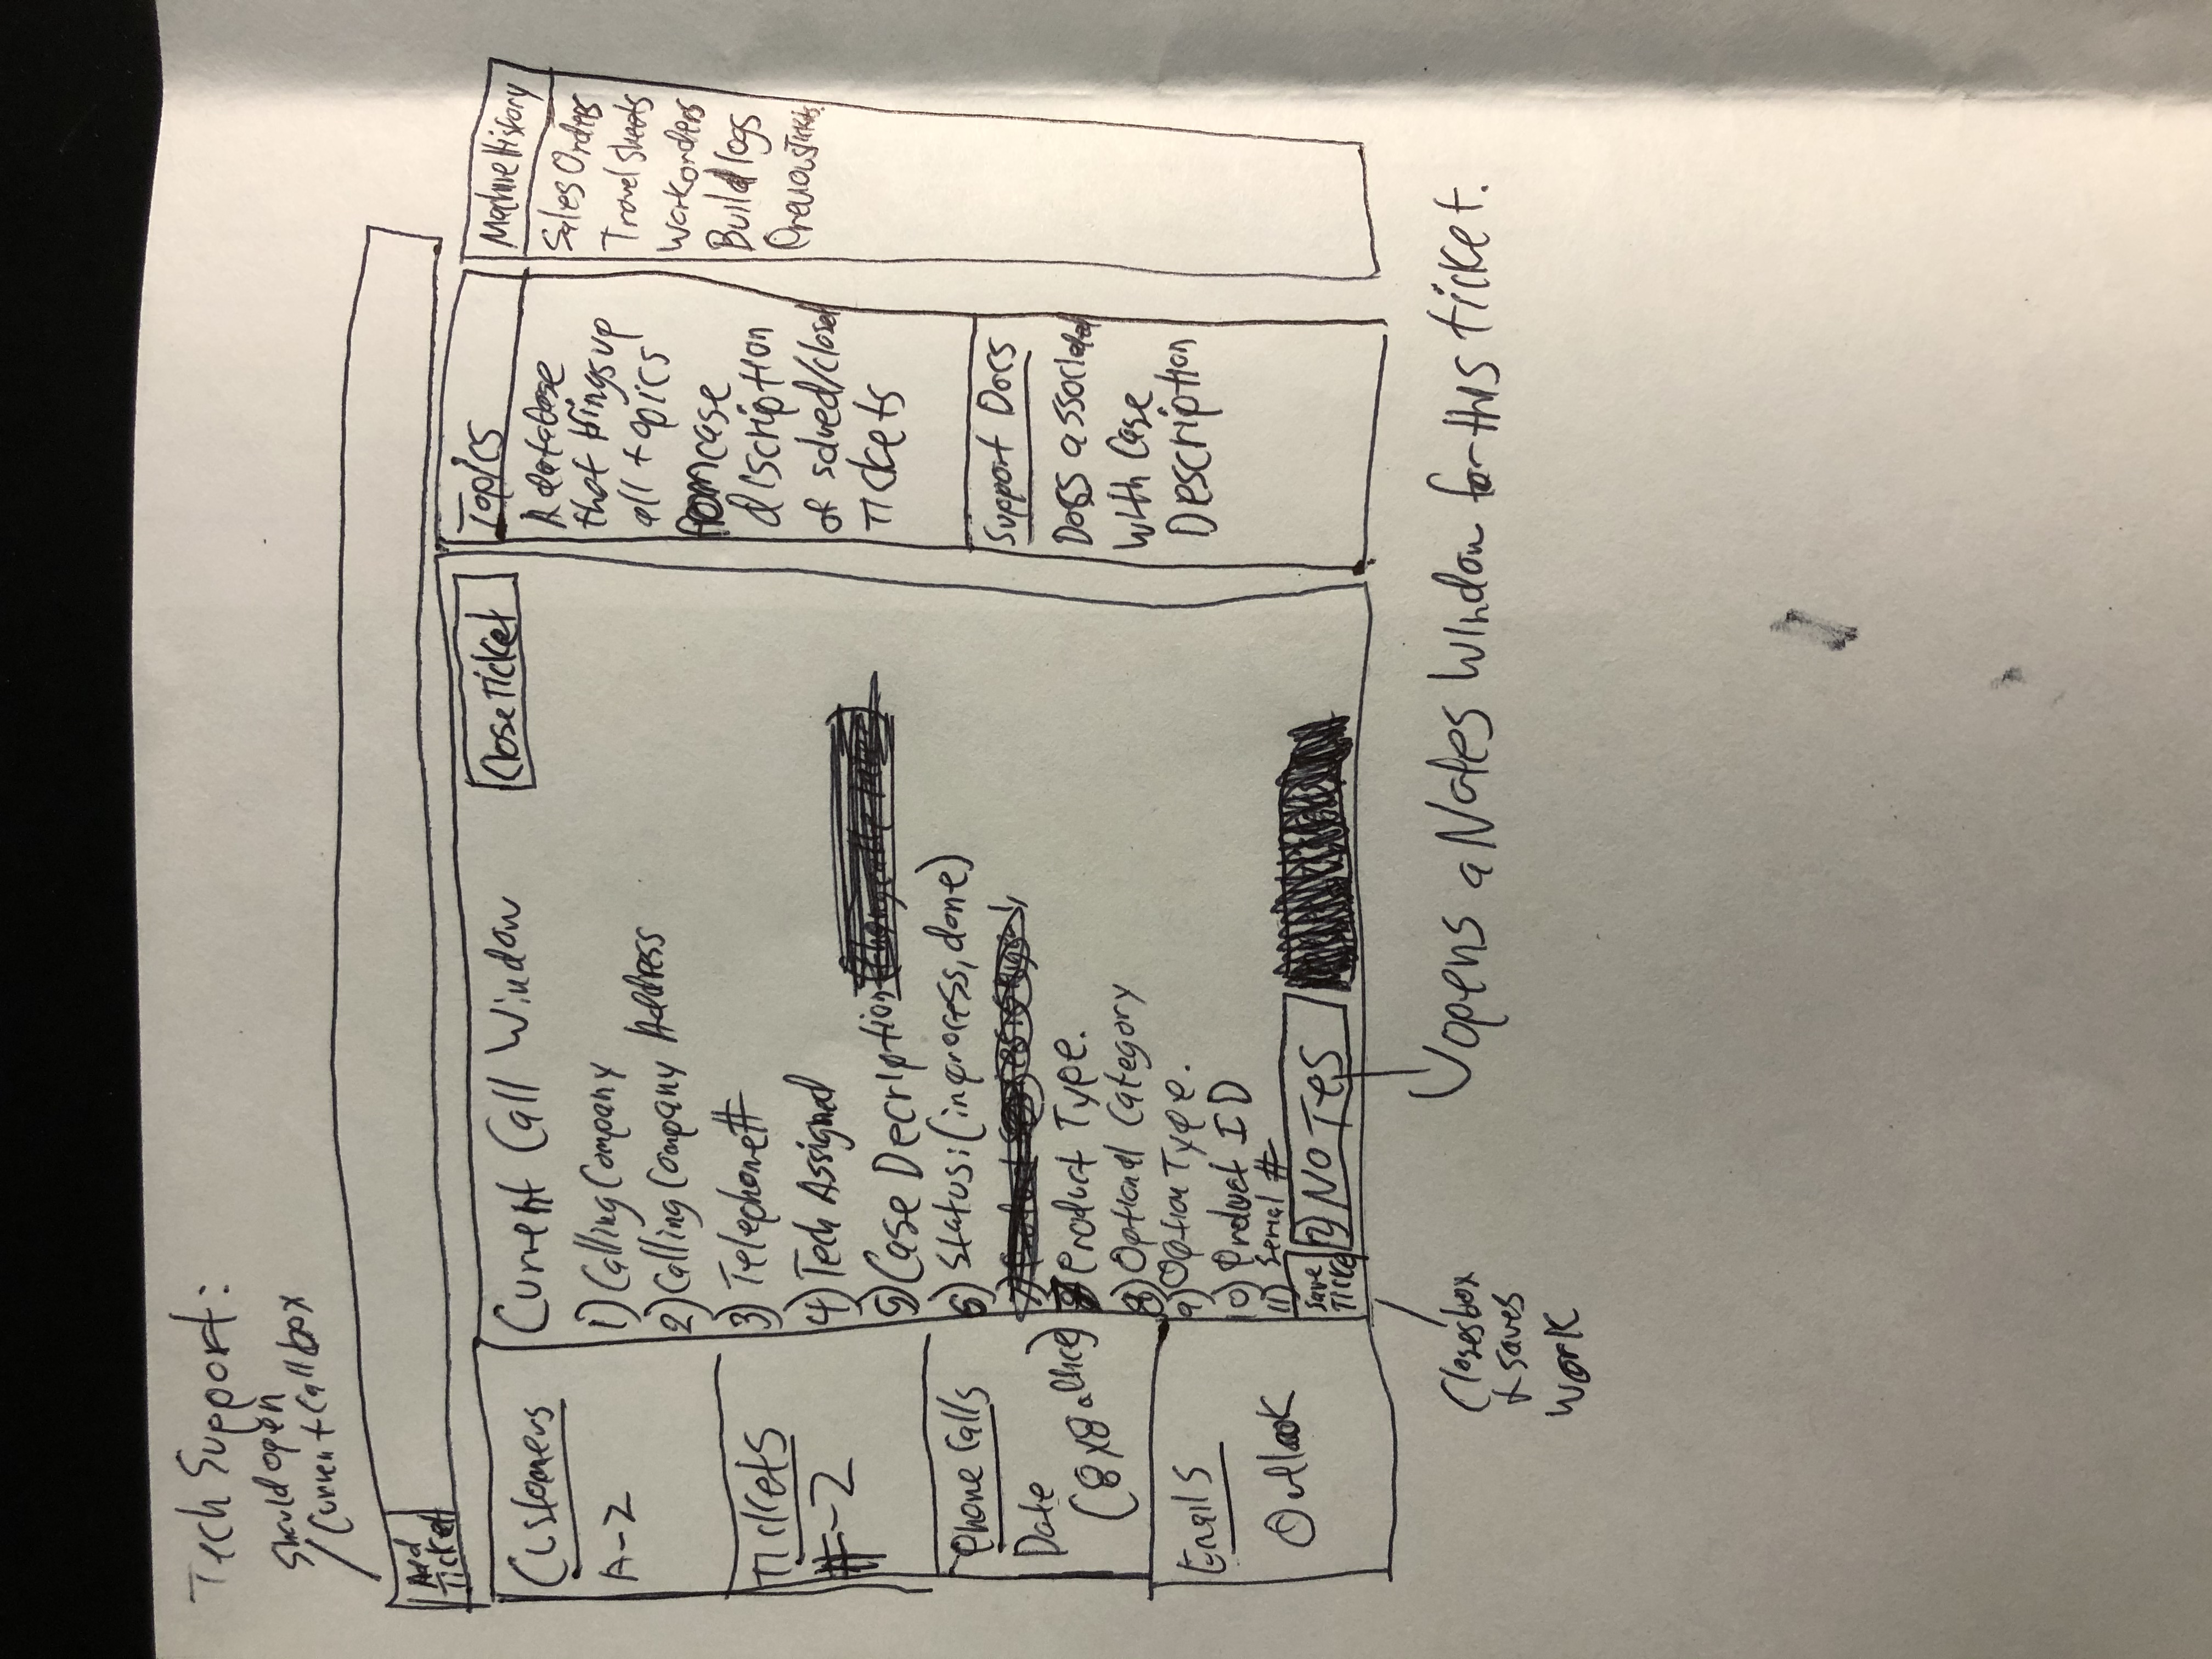 Tech Support:
Should open
Current Call box
Add
Ticket
Customers
A-Z
Tickets
#-Z
Phone Calls
Date
(8x8 
Emails
Outlook
Current Call Window
Close Ticket
1) Calling Company
2) Calling Company Address
3) Telephone#
4) Tech Assigned
5) Case Decription
6) Status: (in process, done)
Product Type.
8) Optional Category
9) Option Type.
10) Product ID
11) Serial #
Save
Ticket
12) Notes
Topics
A database
that brings up
all topics
from case
discription
of solved/closed
Tickets
Support Docs
Docs associated
with Case
Description
Machine History
Sales Orders
Travel Sheets
Workorders
Build logs
Previous Tickets
Closes box
& saves
work
opens a Notes Window for this ticket.